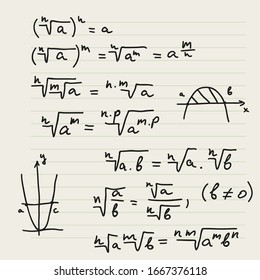 (ⁿ√a)ⁿ = a
(ⁿ√a)ᵐ = ⁿ√aᵐ = a^(m/n)
ⁿ√(ᵐ√a) = ⁿ·ᵐ√a
a b
x
ⁿ√aᵐ = ⁿ·ᵖ√aᵐ·ᵖ
ⁿ√a.b = ⁿ√a . ⁿ√b
y
a c
ⁿ√(a/b) = ⁿ√a/ⁿ√b, (b ≠ 0)
ⁿ√a ᵐ√b = ⁿᵐ√aᵐbⁿ
shutterstock.com · 1667376118